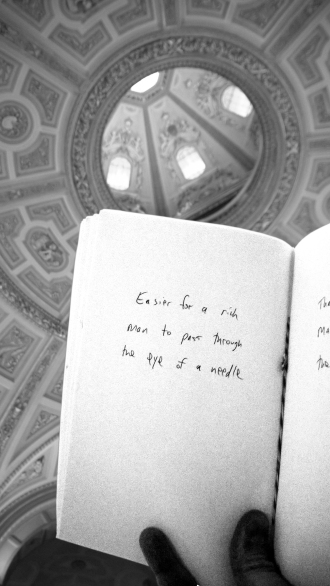 Easier for a rich
man to pass through
the eye of a needle